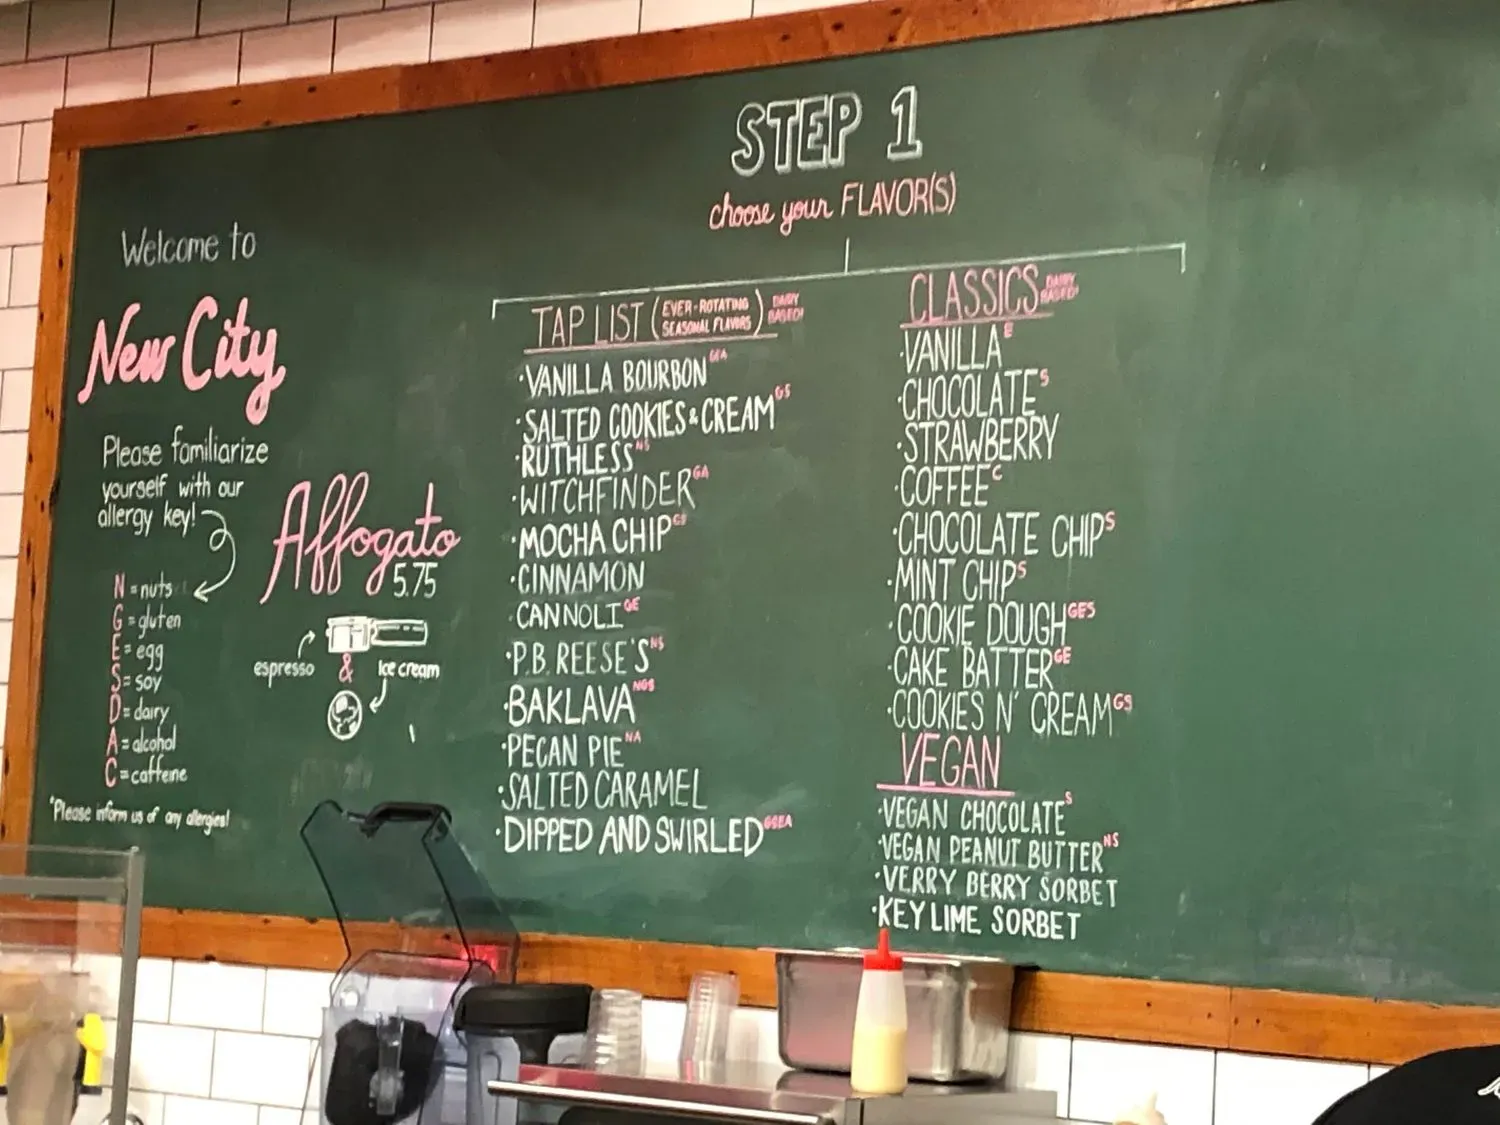 STEP 1
choose your FLAVOR(S)
Welcome to
New City
Please familiarize
yourself with our
allergy key!
N = nuts
G = gluten
E = egg
S = soy
D = dairy
A = alcohol
C = caffeine
*Please inform us of any allergies!
Affogato
5.75
espresso & Ice cream
TAP LIST (EVER-ROTATING SEASONAL FLAVORS) DAIRY BASED!
·VANILLA BOURBON
·SALTED COOKIES & CREAM GS
·RUTHLESS NS
·WITCHFINDER GA
·MOCHA CHIP
·CINNAMON
·CANNOLI GE
·P.B. REESE'S NS
·BAKLAVA NGS
·PECAN PIE NA
·SALTED CARAMEL
·DIPPED AND SWIRLED
CLASSICS DAIRY BASED!
·VANILLA E
·CHOCOLATE S
·STRAWBERRY
·COFFEE C
·CHOCOLATE CHIP S
·MINT CHIP S
·COOKIE DOUGH GES
·CAKE BATTER GE
·COOKIES N' CREAM GS
VEGAN
·VEGAN CHOCOLATE S
·VEGAN PEANUT BUTTER NS
·VERRY BERRY SORBET
·KEY LIME SORBET